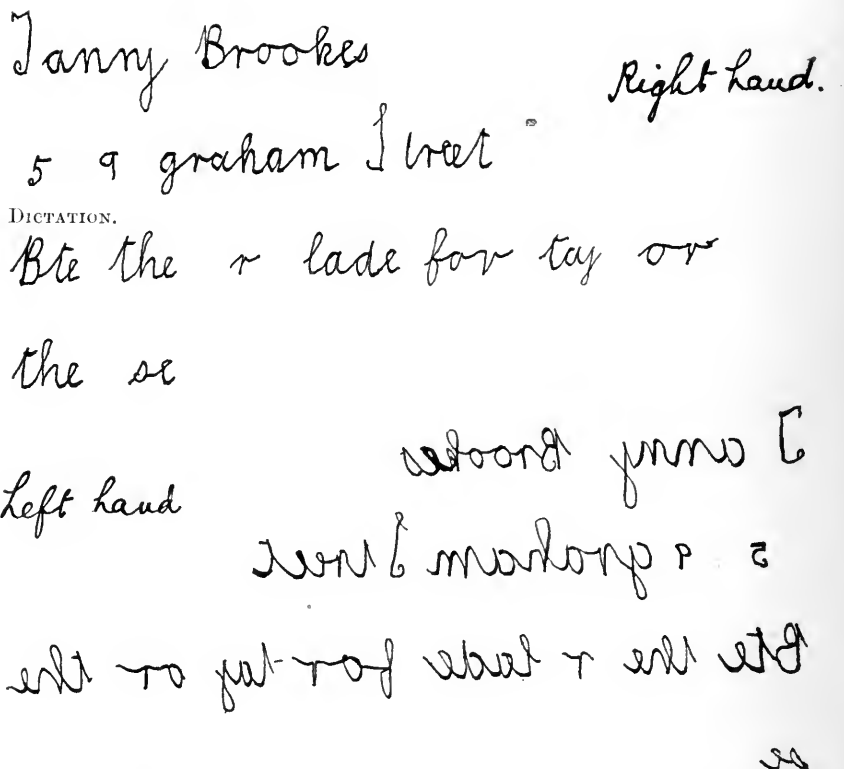 Fanny Brookes
Right hand.
5 9 graham Street
DICTATION.
Bte the r lade for tay or
the se
Fanny Brookes
Left hand
5 9 graham Street
Bte the r lade for tay or the
se